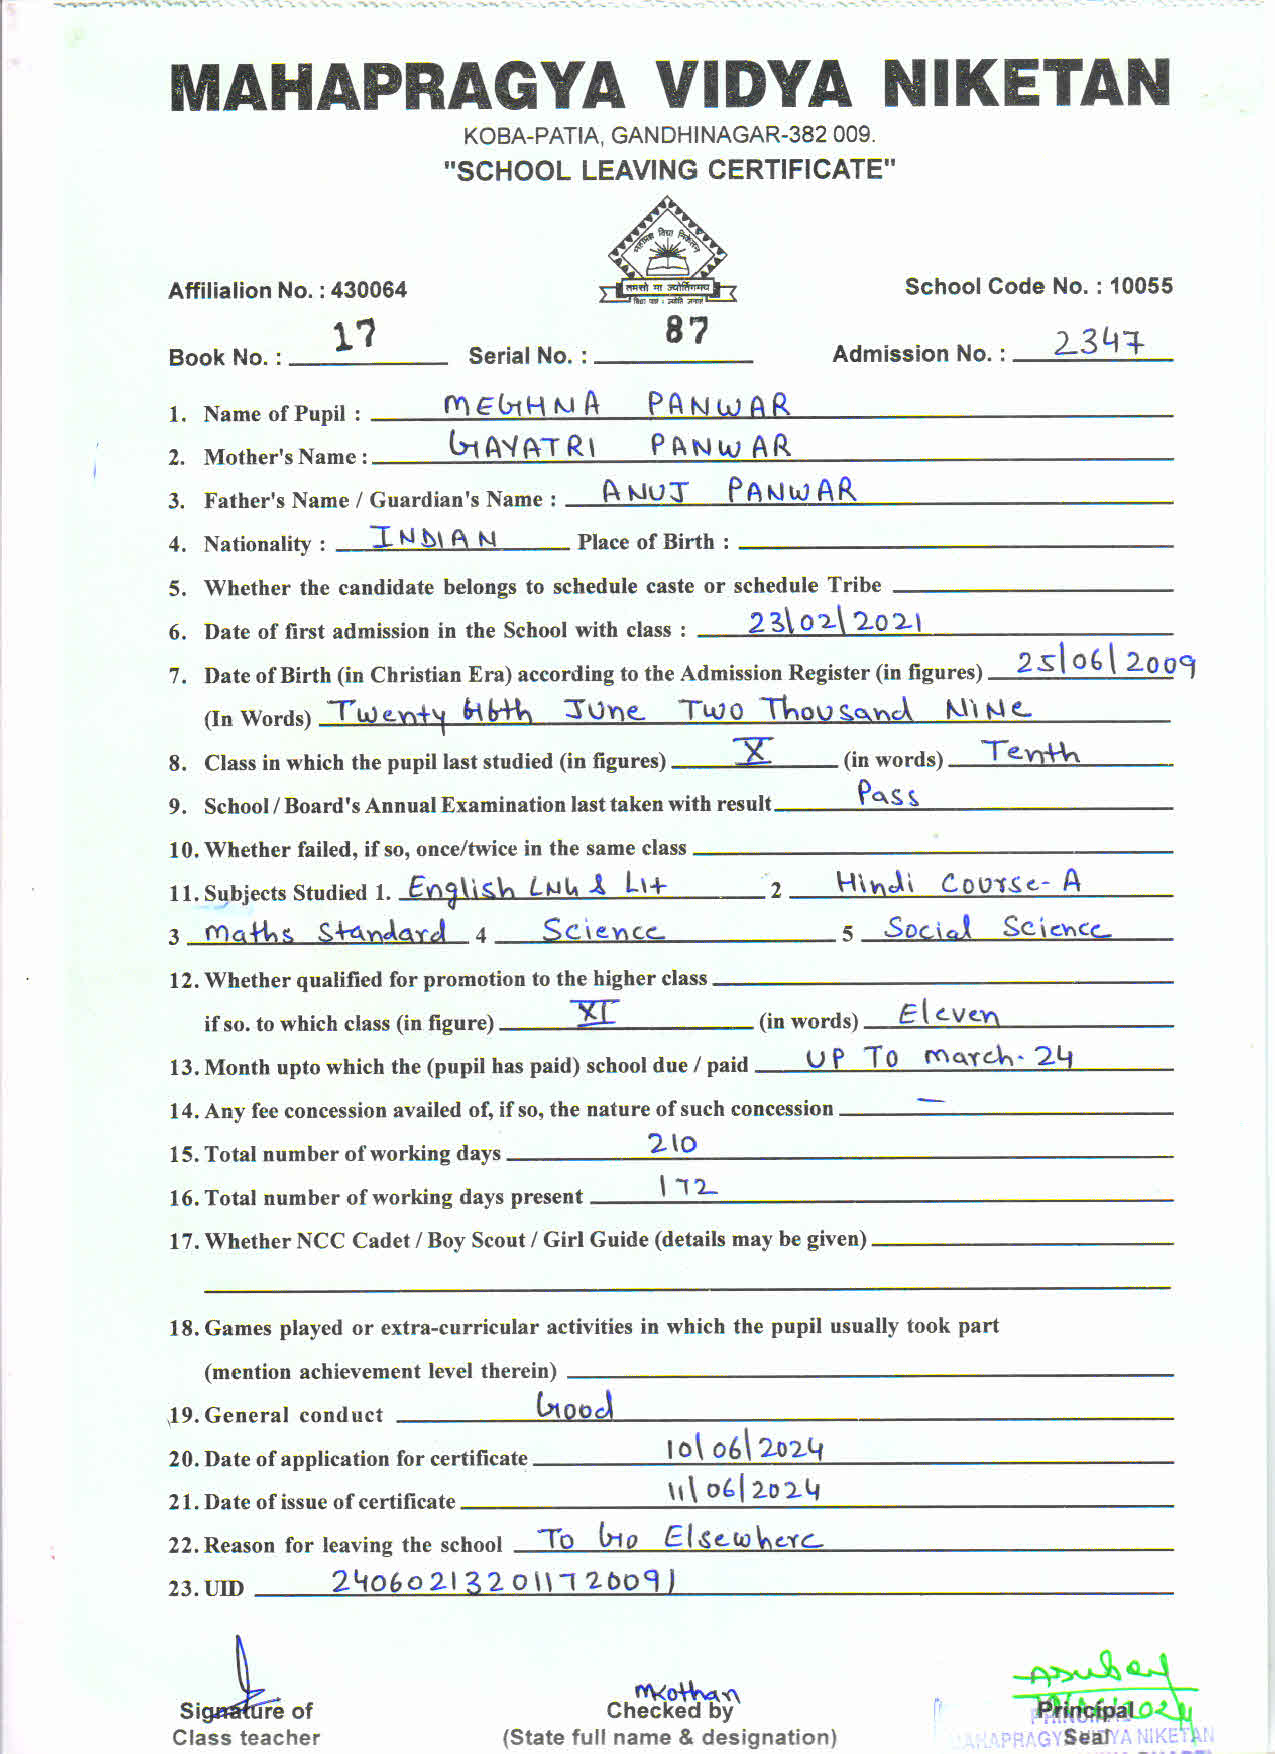 MAHAPRAGYA VIDYA NIKETAN
KOBA-PATIA, GANDHINAGAR-382 009.
"SCHOOL LEAVING CERTIFICATE"
महाप्रज्ञ विद्या निकेतन
तमसो मा ज्योतिर्गमय
Affilialion No. : 430064 School Code No. : 10055
Book No. : 17 Serial No. : 87 Admission No. : 2347
1. Name of Pupil : MEGHNA PANWAR
2. Mother's Name : GAYATRI PANWAR
3. Father's Name / Guardian's Name : ANUJ PANWAR
4. Nationality : INDIAN Place of Birth :
5. Whether the candidate belongs to schedule caste or schedule Tribe
6. Date of first admission in the School with class : 23/02/2021
7. Date of Birth (in Christian Era) according to the Admission Register (in figures) 25/06/2009
(In Words) Twenty June Two Thousand NiNe
8. Class in which the pupil last studied (in figures) X (in words) Tenth
9. School / Board's Annual Examination last taken with result Pass
10. Whether failed, if so, once/twice in the same class
11. Subjects Studied 1. English LNG & Lit 2 Hindi Course-A
3 Maths Standard 4 Science 5 Social Science
12. Whether qualified for promotion to the higher class
if so. to which class (in figure) XI (in words) Eleven
13. Month upto which the (pupil has paid) school due / paid UP TO March-24
14. Any fee concession availed of, if so, the nature of such concession —
15. Total number of working days 210
16. Total number of working days present 172
17. Whether NCC Cadet / Boy Scout / Girl Guide (details may be given)
18. Games played or extra-curricular activities in which the pupil usually took part
(mention achievement level therein)
19. General conduct Good
20. Date of application for certificate 10/06/2024
21. Date of issue of certificate 11/06/2024
22. Reason for leaving the school To Go Elsewhere
23. UID 240602132011720091
Signature of Checked by Principal
Class teacher (State full name & designation) Seal
PRINCIPAL
MAHAPRAGYA VIDYA NIKETAN